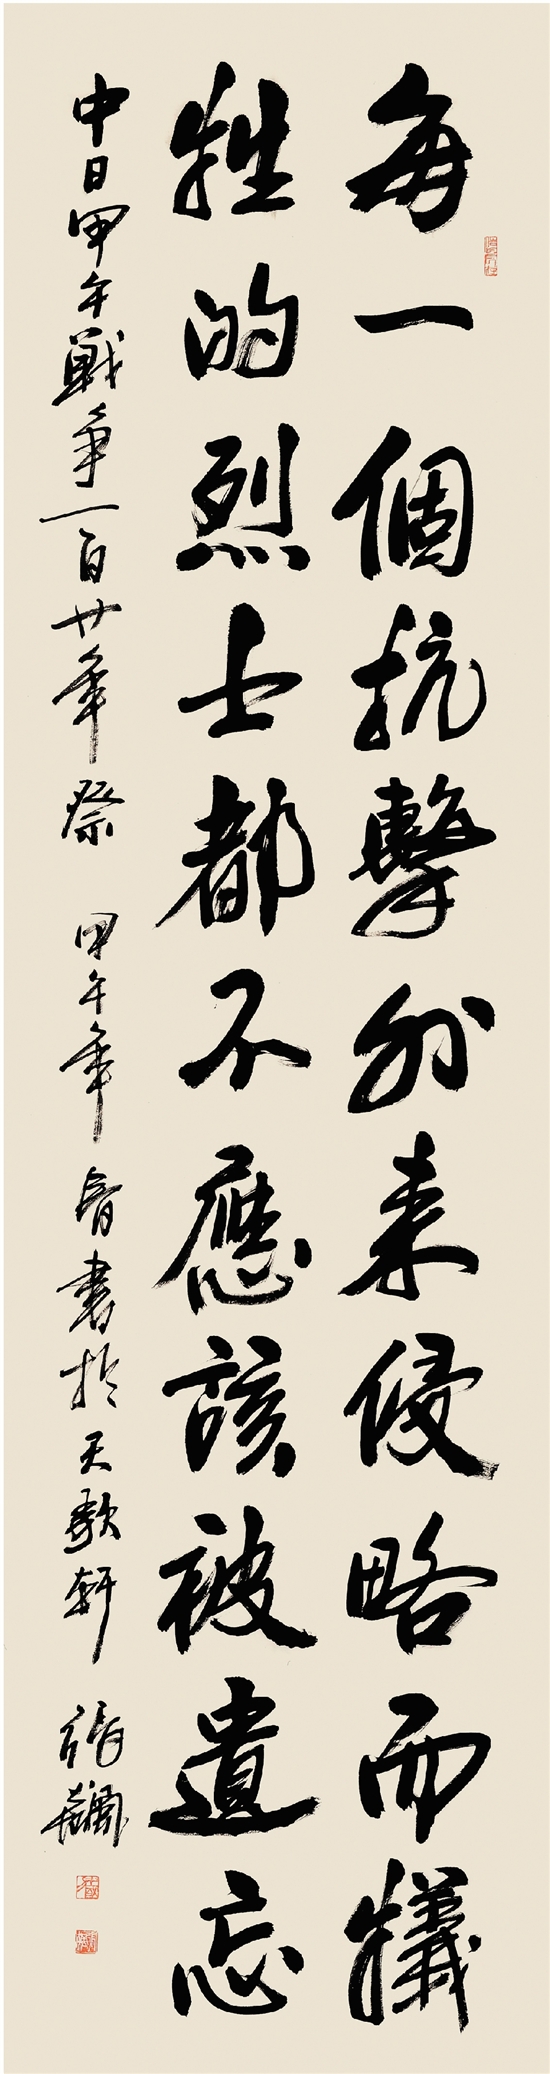 每一個抗擊外来侵略而犧
牲的烈士都不應該被遺忘
中日甲午戰争一百廿年祭 甲午年春書於天歌軒